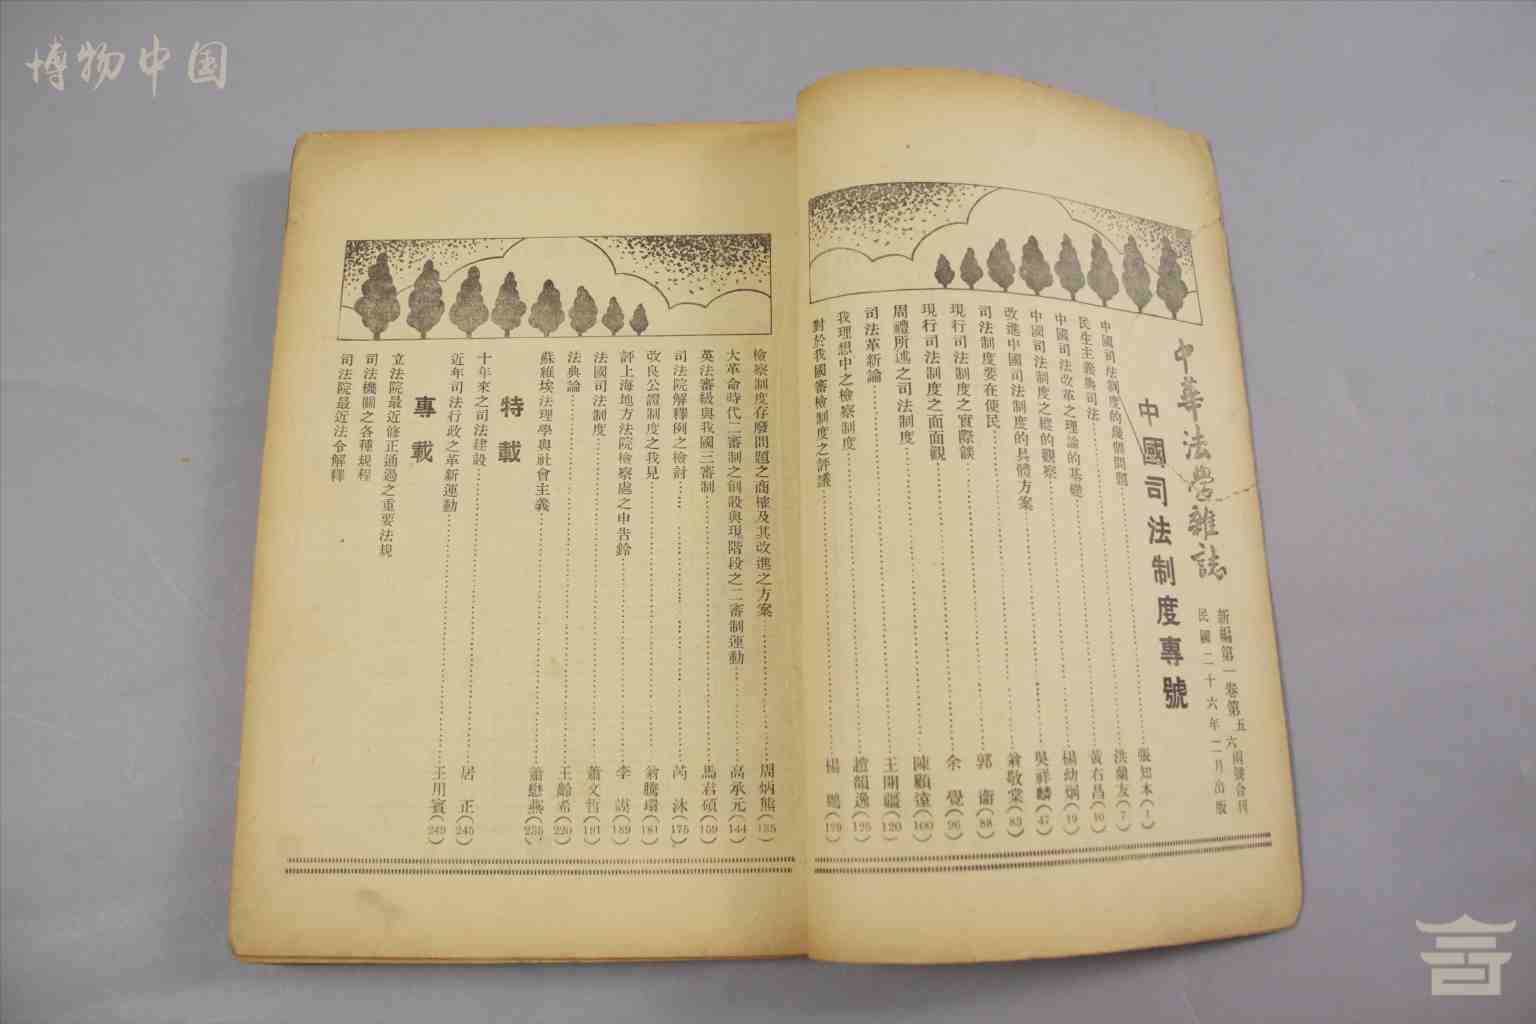 博物中国
中華法學雜誌
新編第一卷第五六兩號合刊
民國二十六年二月出版
中國司法制度專號
中國司法制度的幾個問題……張知本(1)
民生主義與司法……洪蘭友(7)
中國司法改革之理論的基礎……黃右昌(10)
中國司法制度之縱的觀察……楊幼炯(19)
改進中國司法制度的具體方案……吳祥麟(47)
司法制度要在便民……翁敬棠(83)
現行司法制度之實際談……郭衞(88)
現行司法制度之面面觀……余覺(96)
周禮所述之司法制度……陳顧遠(100)
司法革新論……王開疆(120)
我理想中之檢察制度……趙韻逸(125)
對於我國審檢制度之評議……楊鵬(129)
檢察制度存廢問題之商榷及其改進之方案……周炳熊(135)
大革命時代二審制之創設與現階段之二審制運動……高承元(144)
英法審級與我國三審制……馬君碩(159)
司法院解釋例之檢討……芮沐(175)
改良公證制度之我見……翁騰環(181)
評上海地方法院檢察處之申告鈴……李謨(189)
法國司法制度……蕭文哲(191)
法典論……王齡希(220)
蘇維埃法理學與社會主義……蕭懋燕(235)
特載
十年來之司法建設……居正(245)
近年司法行政之革新運動……王用賓(249)
專載
立法院最近修正通過之重要法規
司法機關之各種規程
司法院最近法令解釋